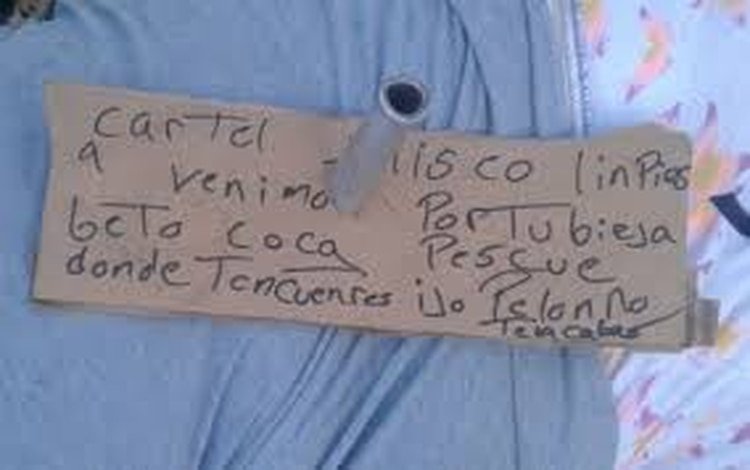 cartel Jalisco linpias
a venimos Portubieja
beto coca Pescue
donde Tencuenres ijo Pelon No
Tencabes